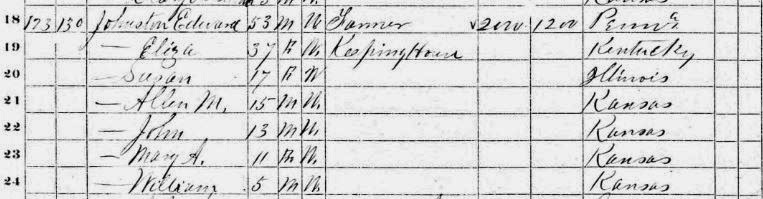 18 173 130 Johnston Edward 53 M W Farmer 2000 1200 Penna
19 — Eliza 37 F W Keeping House Kentucky
20 — Susan 17 F W Illinois
21 — Allen M. 15 M W Kansas
22 — John 13 M W Kansas
23 — Mary A. 11 F W Kansas
24 — William 5 M W Kansas